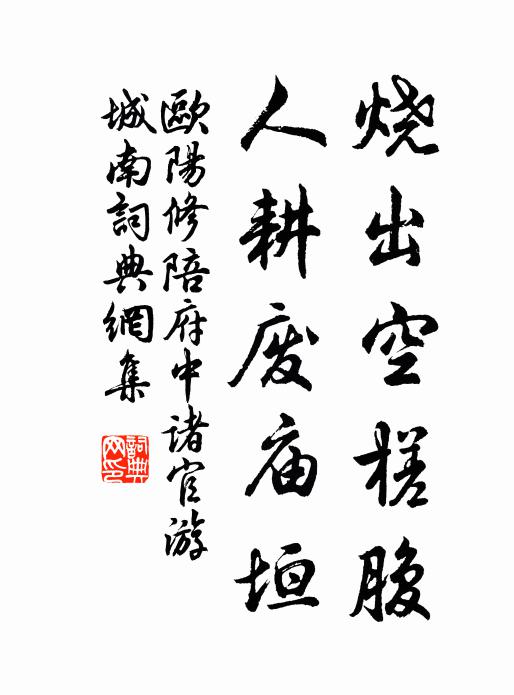 烧出空槎腹
人耕废庙垣
歐陽修陪府中诸官游
城南詞典網集
詞典
网印